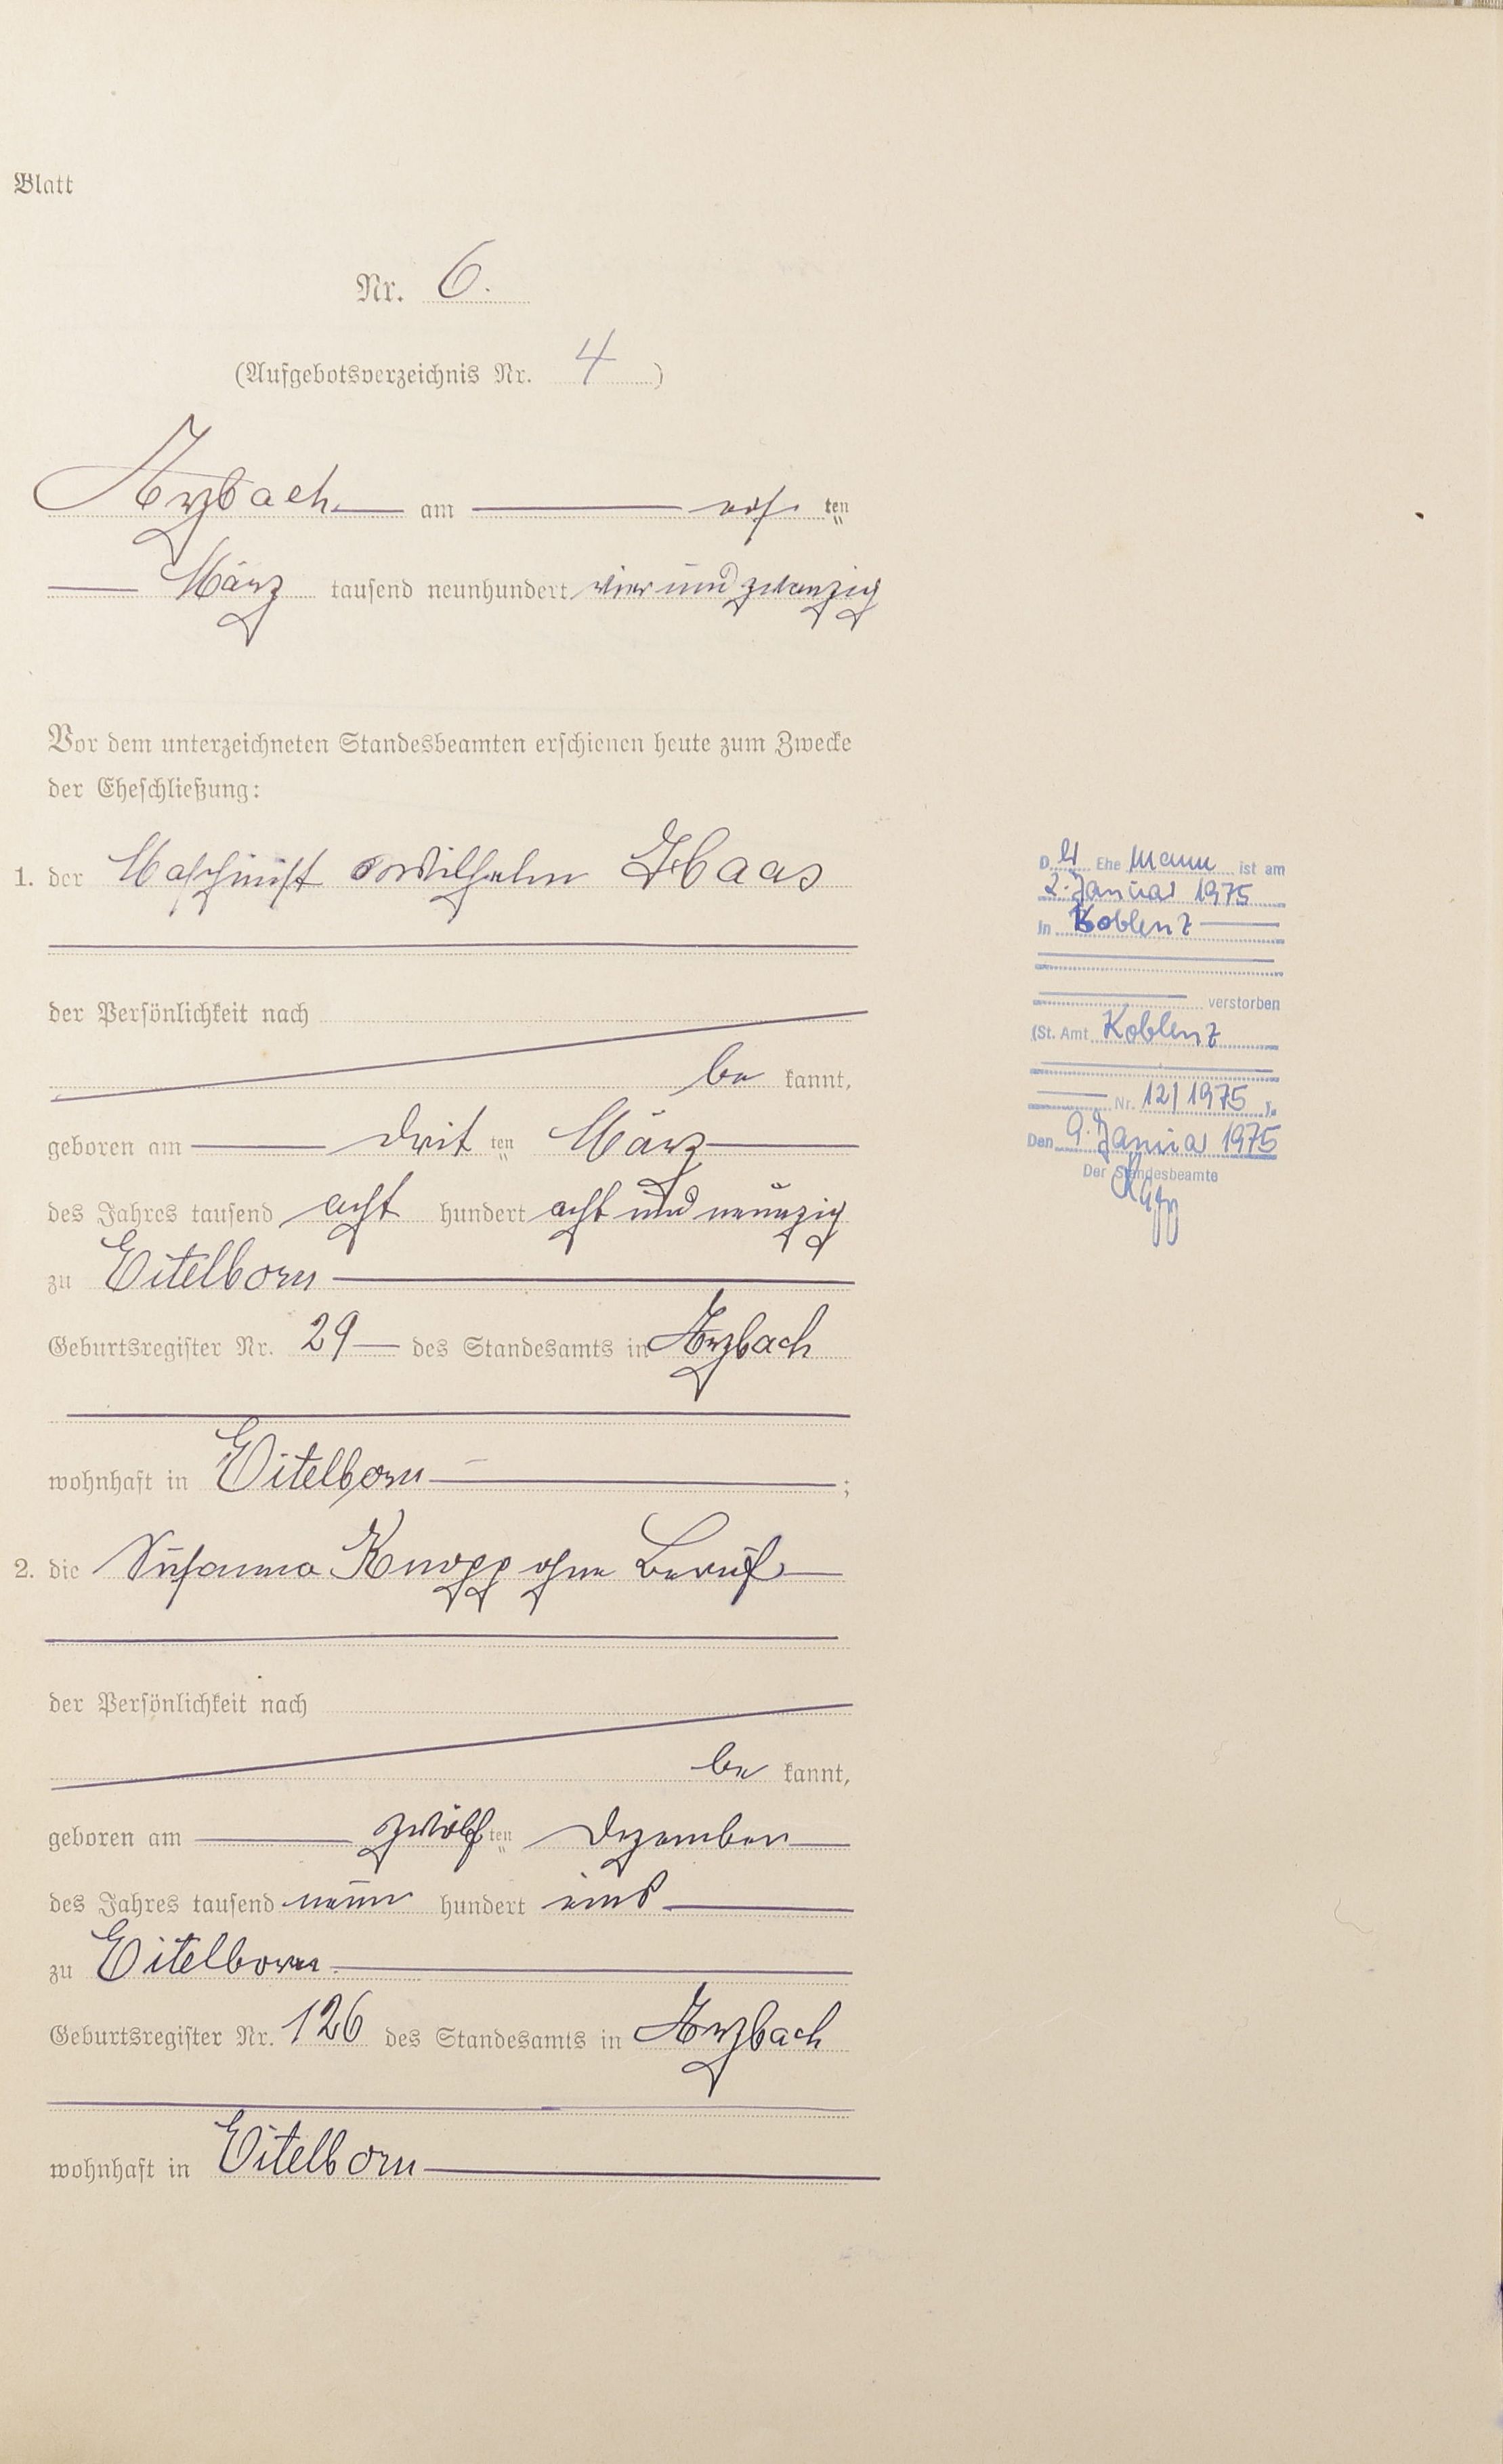 Blatt
Nr. 6.
(Aufgebotsverzeichnis Nr. 4)
Arzbach am ten
März tausend neunhundert vier und zwanzig
Vor dem unterzeichneten Standesbeamten erschienen heute zum Zwecke
der Eheschließung:
1. der Maschinist Wilhelm Haas
der Persönlichkeit nach
be kannt,
geboren am drit ten März
des Jahres tausend acht hundert acht und neunzig
zu Eitelborn
Geburtsregister Nr. 29 des Standesamts in Arzbach
wohnhaft in Eitelborn ;
2. die Susanna Knopp ohne Beruf
der Persönlichkeit nach
be kannt,
geboren am zwölf ten Dezember
des Jahres tausend neun hundert eins
zu Eitelborn
Geburtsregister Nr. 126 des Standesamts in Arzbach
wohnhaft in Eitelborn
Der Ehe Mann ist am
2. Januar 1975
in Koblenz
verstorben
(St. Amt Koblenz
Nr. 12/1975 ).
Den 9. Januar 1975
Der Standesbeamte